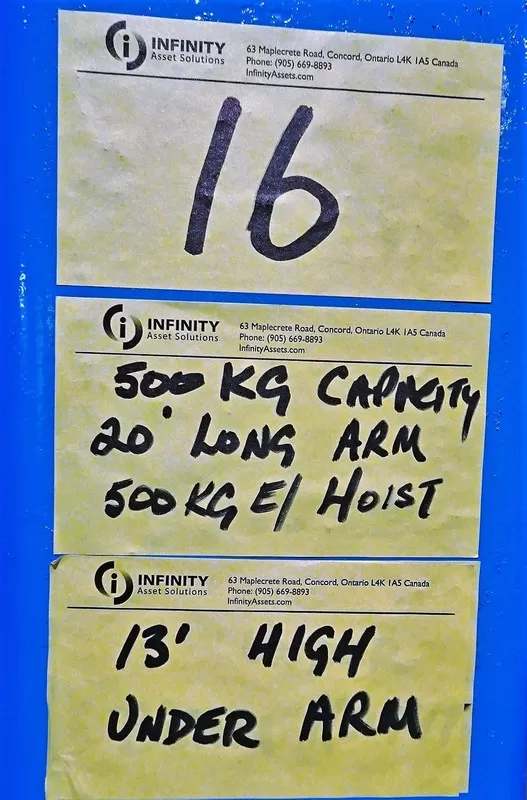 INFINITY
Asset Solutions
63 Maplecrete Road, Concord, Ontario L4K 1A5 Canada
Phone: (905) 669-8893
InfinityAssets.com
16
INFINITY
Asset Solutions
63 Maplecrete Road, Concord, Ontario L4K 1A5 Canada
Phone: (905) 669-8893
InfinityAssets.com
500 KG CAPACITY
20' LONG ARM
500 KG E/ HOIST
INFINITY
Asset Solutions
63 Maplecrete Road, Concord, Ontario L4K 1A5 Canada
Phone: (905) 669-8893
InfinityAssets.com
13' HIGH
UNDER ARM